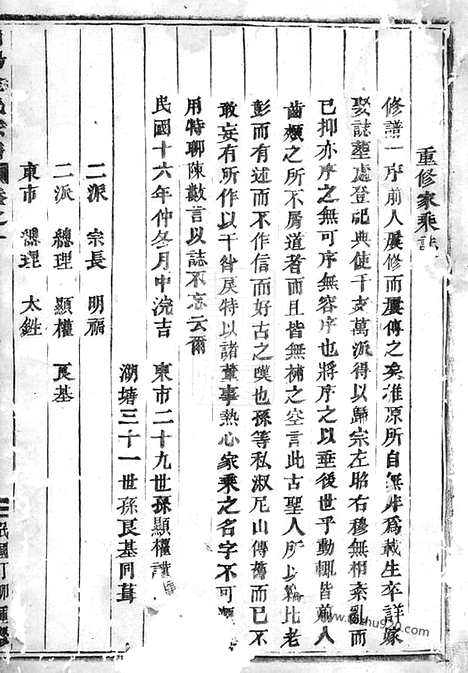 重修家乘誌
修譜一序前人屢修而屢傳之矣准原所自無非為載生卒詳嫁
娶誌塟處登記典使千支萬派得以歸宗左昭右穆無相紊亂而
已抑亦序之無容序也將序之以垂後世乎動輒皆前人
齒頰之所不屑道者而且皆無補之空言此古聖人所以竊比老
彭而有述而不作信而好古之嘆也孫等私淑尼山傳舊而已不
敢妄有所作以干咎戾特以諸董事熱心家乘之名字不可
用特聊陳數言以誌不忘云爾
民國十六年仲冬月中浣吉 東市二十九世孫顯權
湖塘三十一世孫良基同葺
二派 宗長 明福
二派 總理 顯權 良基
東市 總理 太銼
民國丁卯重
www.